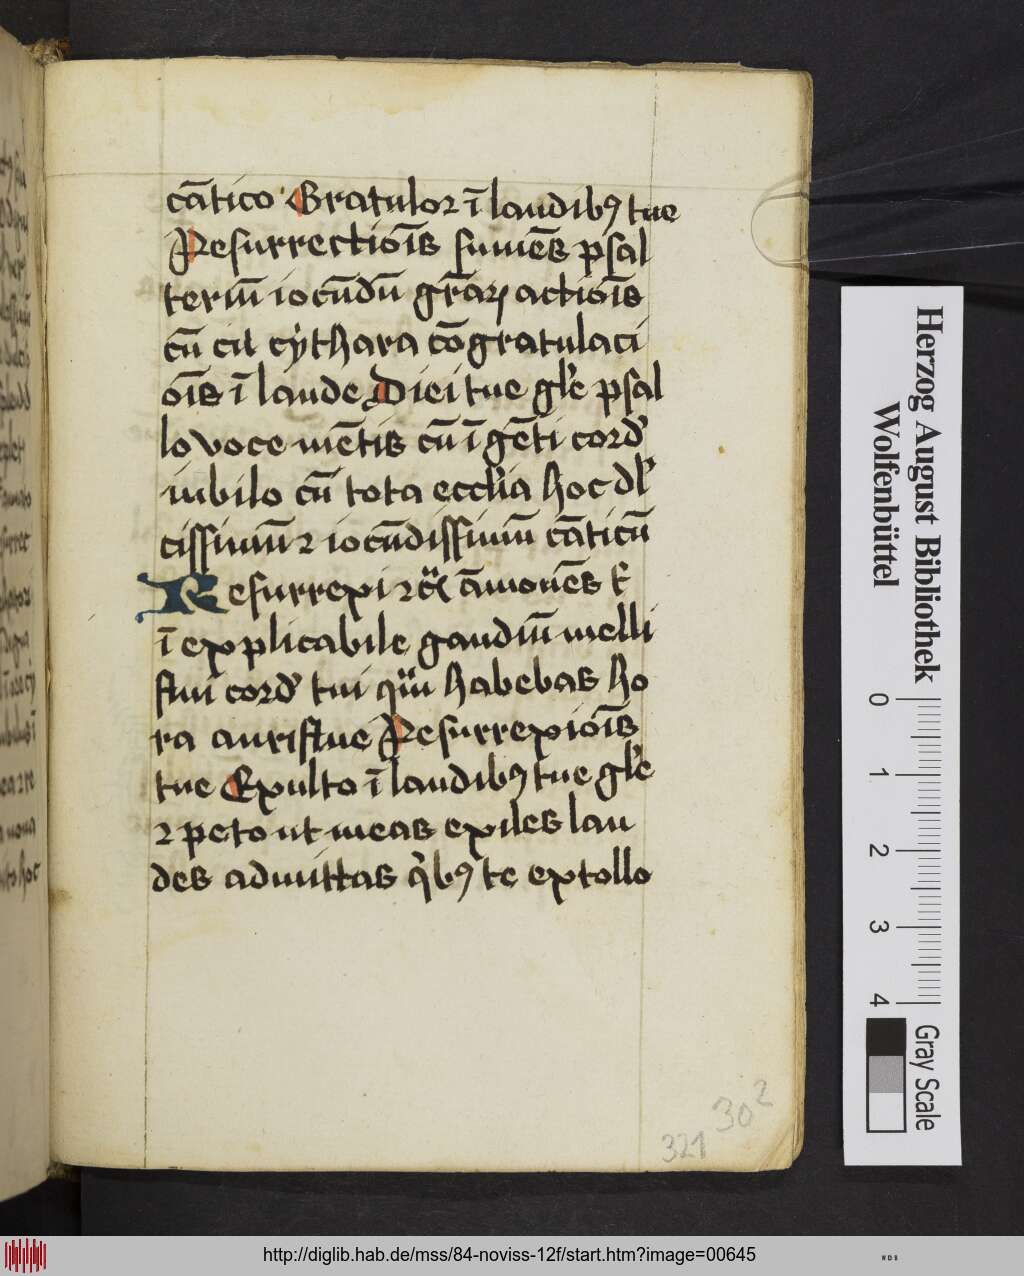 cātico Gratulor ī laudibꝰ tue
Resurrectiōis sumēs psal
teriū iocūdū gr̄aꝝ actiōis
cū cū cythara cōgratulaci
ōis ī laude Diei tue gl'e psal
lo voce mētis cū īgēti cord'
iubilo cū tota eccl'ia hoc dl'
cissimū ⁊ iocūdissimū cāticū
Resurrexi ⁊c̄ āmonēs
īexplicabile gaudiū melli
flui cord' tui habebas ho
ra auriflue Resurrexiōis
tue Exulto ī laudibꝰ tue gl'e
⁊ peto ut meas exiles lau
des admittas qⁱbꝰ te extollo
302
321
Herzog August Bibliothek
Wolfenbüttel
0 1 2 3 4
Gray Scale
http://diglib.hab.de/mss/84-noviss-12f/start.htm?image=00645